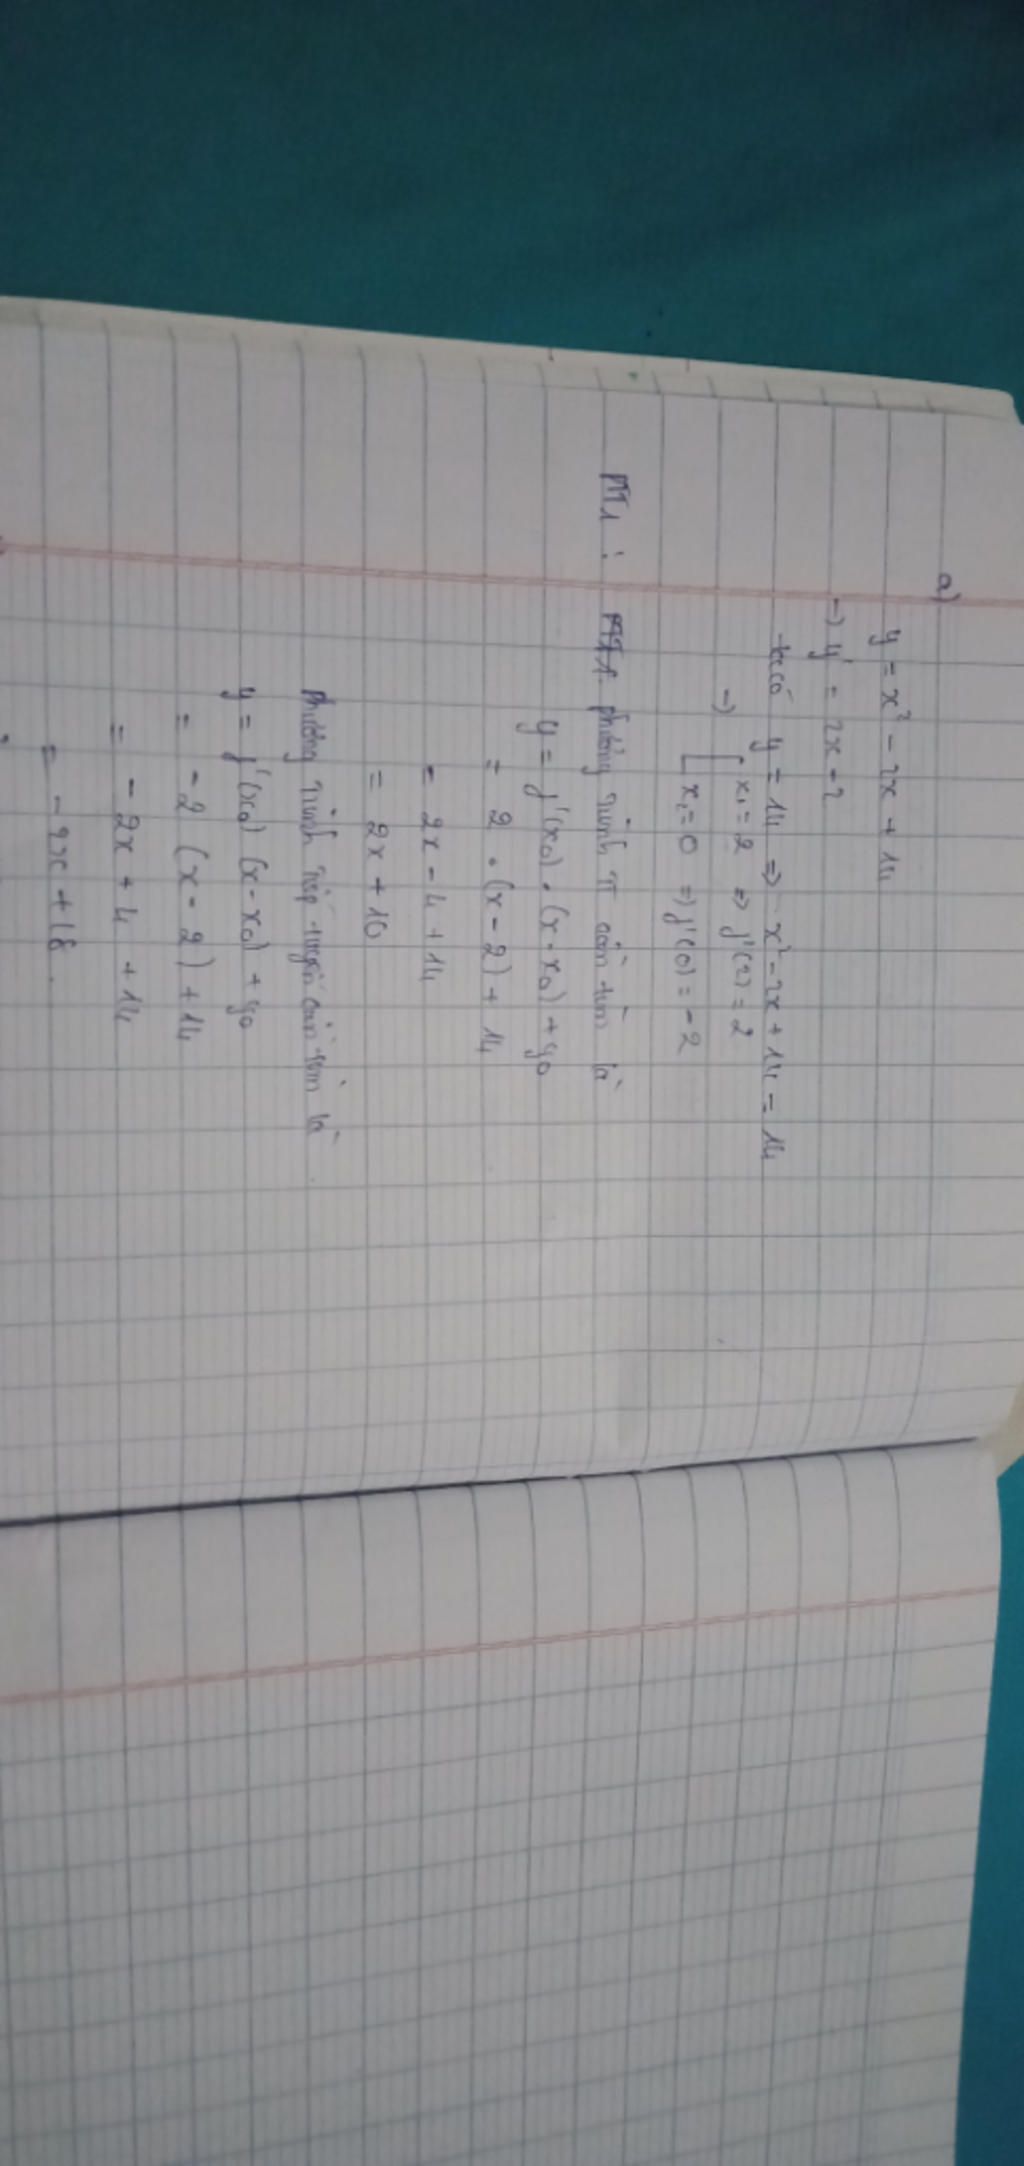 a)
y = x² - 2x + 14
→ y' = 2x - 2
ta có y = 14 ⇒ x² - 2x + 14 = 14
→ [ x₁ = 2 ⇒ f'(2) = 2
[ x₂ = 0 ⇒ f'(0) = -2
PT1 : phương trình TT cần tìm là
y = f'(x₀) . (x - x₀) + y₀
= 2 . (x - 2) + 14
= 2x - 4 + 14
= 2x + 10
Phương trình tiếp tuyến cần tìm là
y = f'(x₀) (x - x₀) + y₀
= -2 (x - 2) + 14
= -2x + 4 + 14
= -2x + 18 .